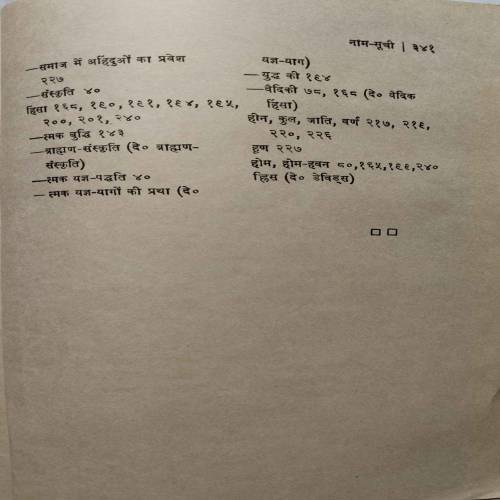 नाम-सूची | ३४१
—समाज में अहिंदुओं का प्रवेश
२२७
—संस्कृति ४०
हिंसा १६८, १९०, १९१, १९४, १९५,
२००, २०१, २४०
—त्मक बुद्धि १४३
—ब्राह्मण-संस्कृति (दे० ब्राह्मण-
संस्कृति)
—त्मक यज्ञ-पद्धति ४०
—त्मक यज्ञ-यागों की प्रथा (दे०
यज्ञ-याग)
—युद्ध की १९४
—वैदिकी ७८, १६८ (दे० वैदिक
हिंसा)
हीन, कुल, जाति, वर्ण २१७, २१९,
२२०, २२६
हूण २२७
होम, होम-हवन ८०,१६५,१९९,२४०
ह्रिस (दे० डेविड्स)